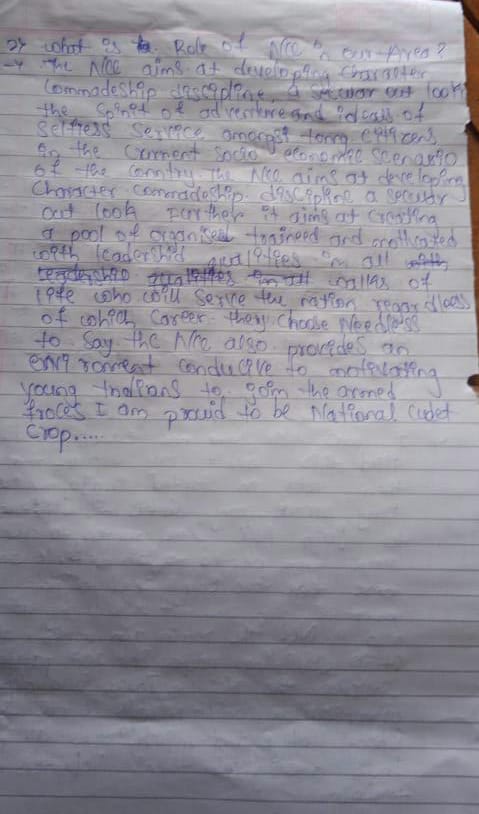 2) what is Role of NCC in our Area?
→ The NCC aims at developing Character
Commadeship discipline, a secular out look
the Spirit of adventure and ideals of
Selfless Service amongst Citizens
In the Current Socio economic Scenario
of the Country. the NCC aims at developing
Character Commradeship. discipline a Secular
out look Further it aims at Creating
a pool of organised traineed and motivated
with leadership qualities in all with
leadership qualities in all walks of
life who will Serve the nation regardless
of which Career they Choose Needless
to Say the NCC also provides an
environment conducive to motivating
young Indians to join the armed
froces I am prouid to be National Cudet
Crop.....